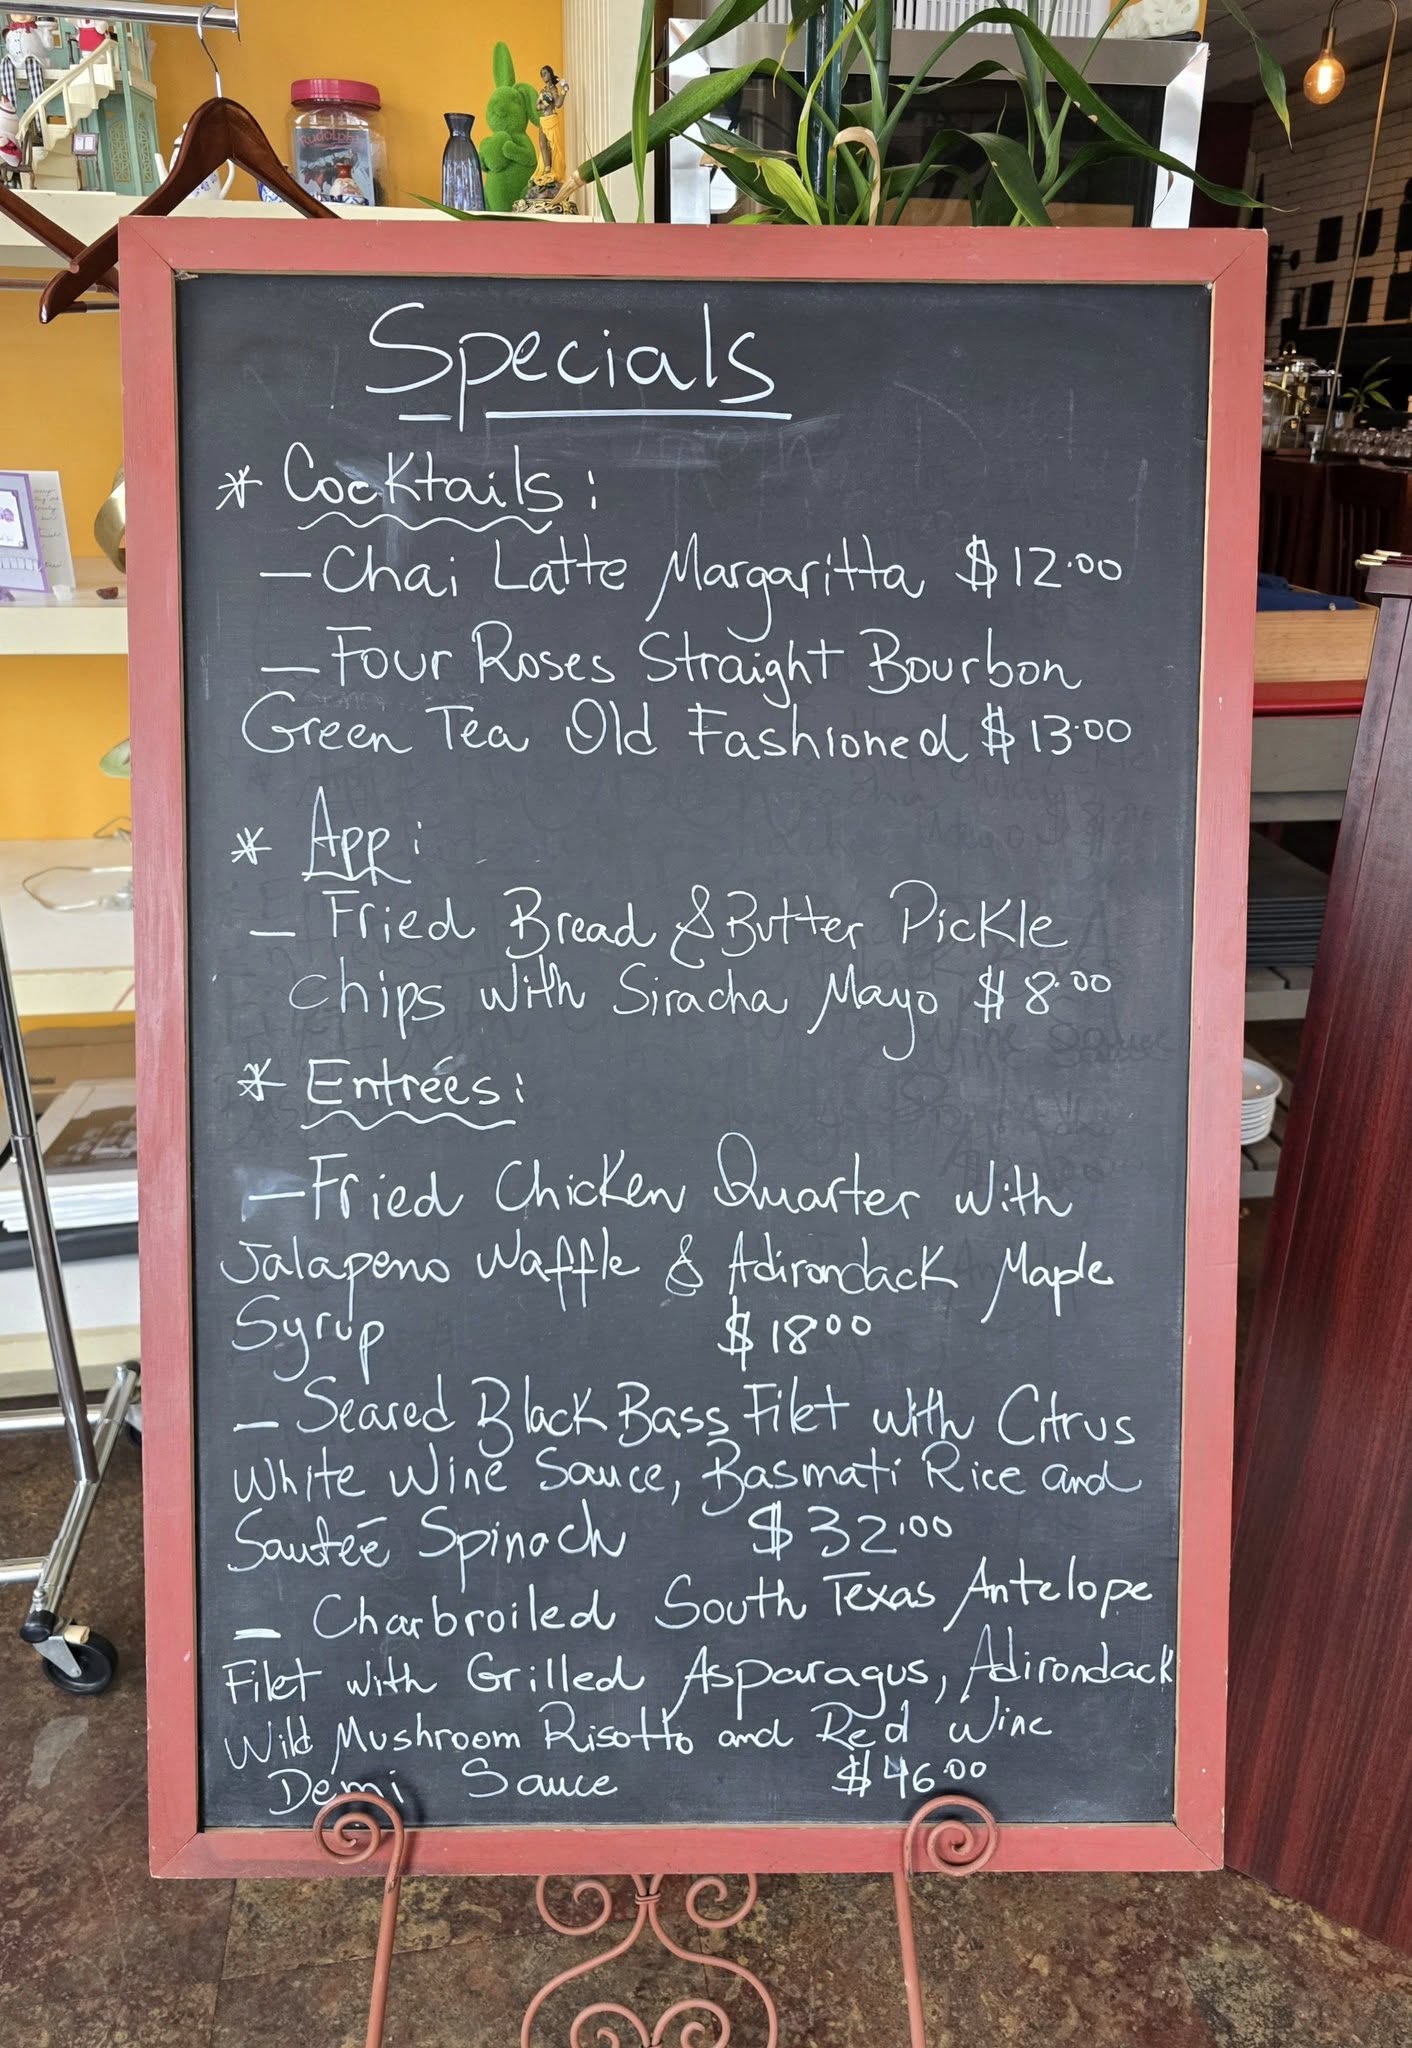 Specials
* Cocktails:
- Chai Latte Margaritta $12.00
- Four Roses Straight Bourbon
Green Tea Old Fashioned $13.00
* App:
- Fried Bread & Butter Pickle
Chips with Siracha Mayo $8.00
* Entrées:
- Fried Chicken Quarter with
Jalapeno Waffle & Adirondack Maple
Syrup $18.00
- Seared Black Bass Filet with Citrus
White Wine Sauce, Basmati Rice and
Sauteé Spinach $32.00
- Charbroiled South Texas Antelope
Filet with Grilled Asparagus, Adirondack
Wild Mushroom Risotto and Red Wine
Demi Sauce $46.00